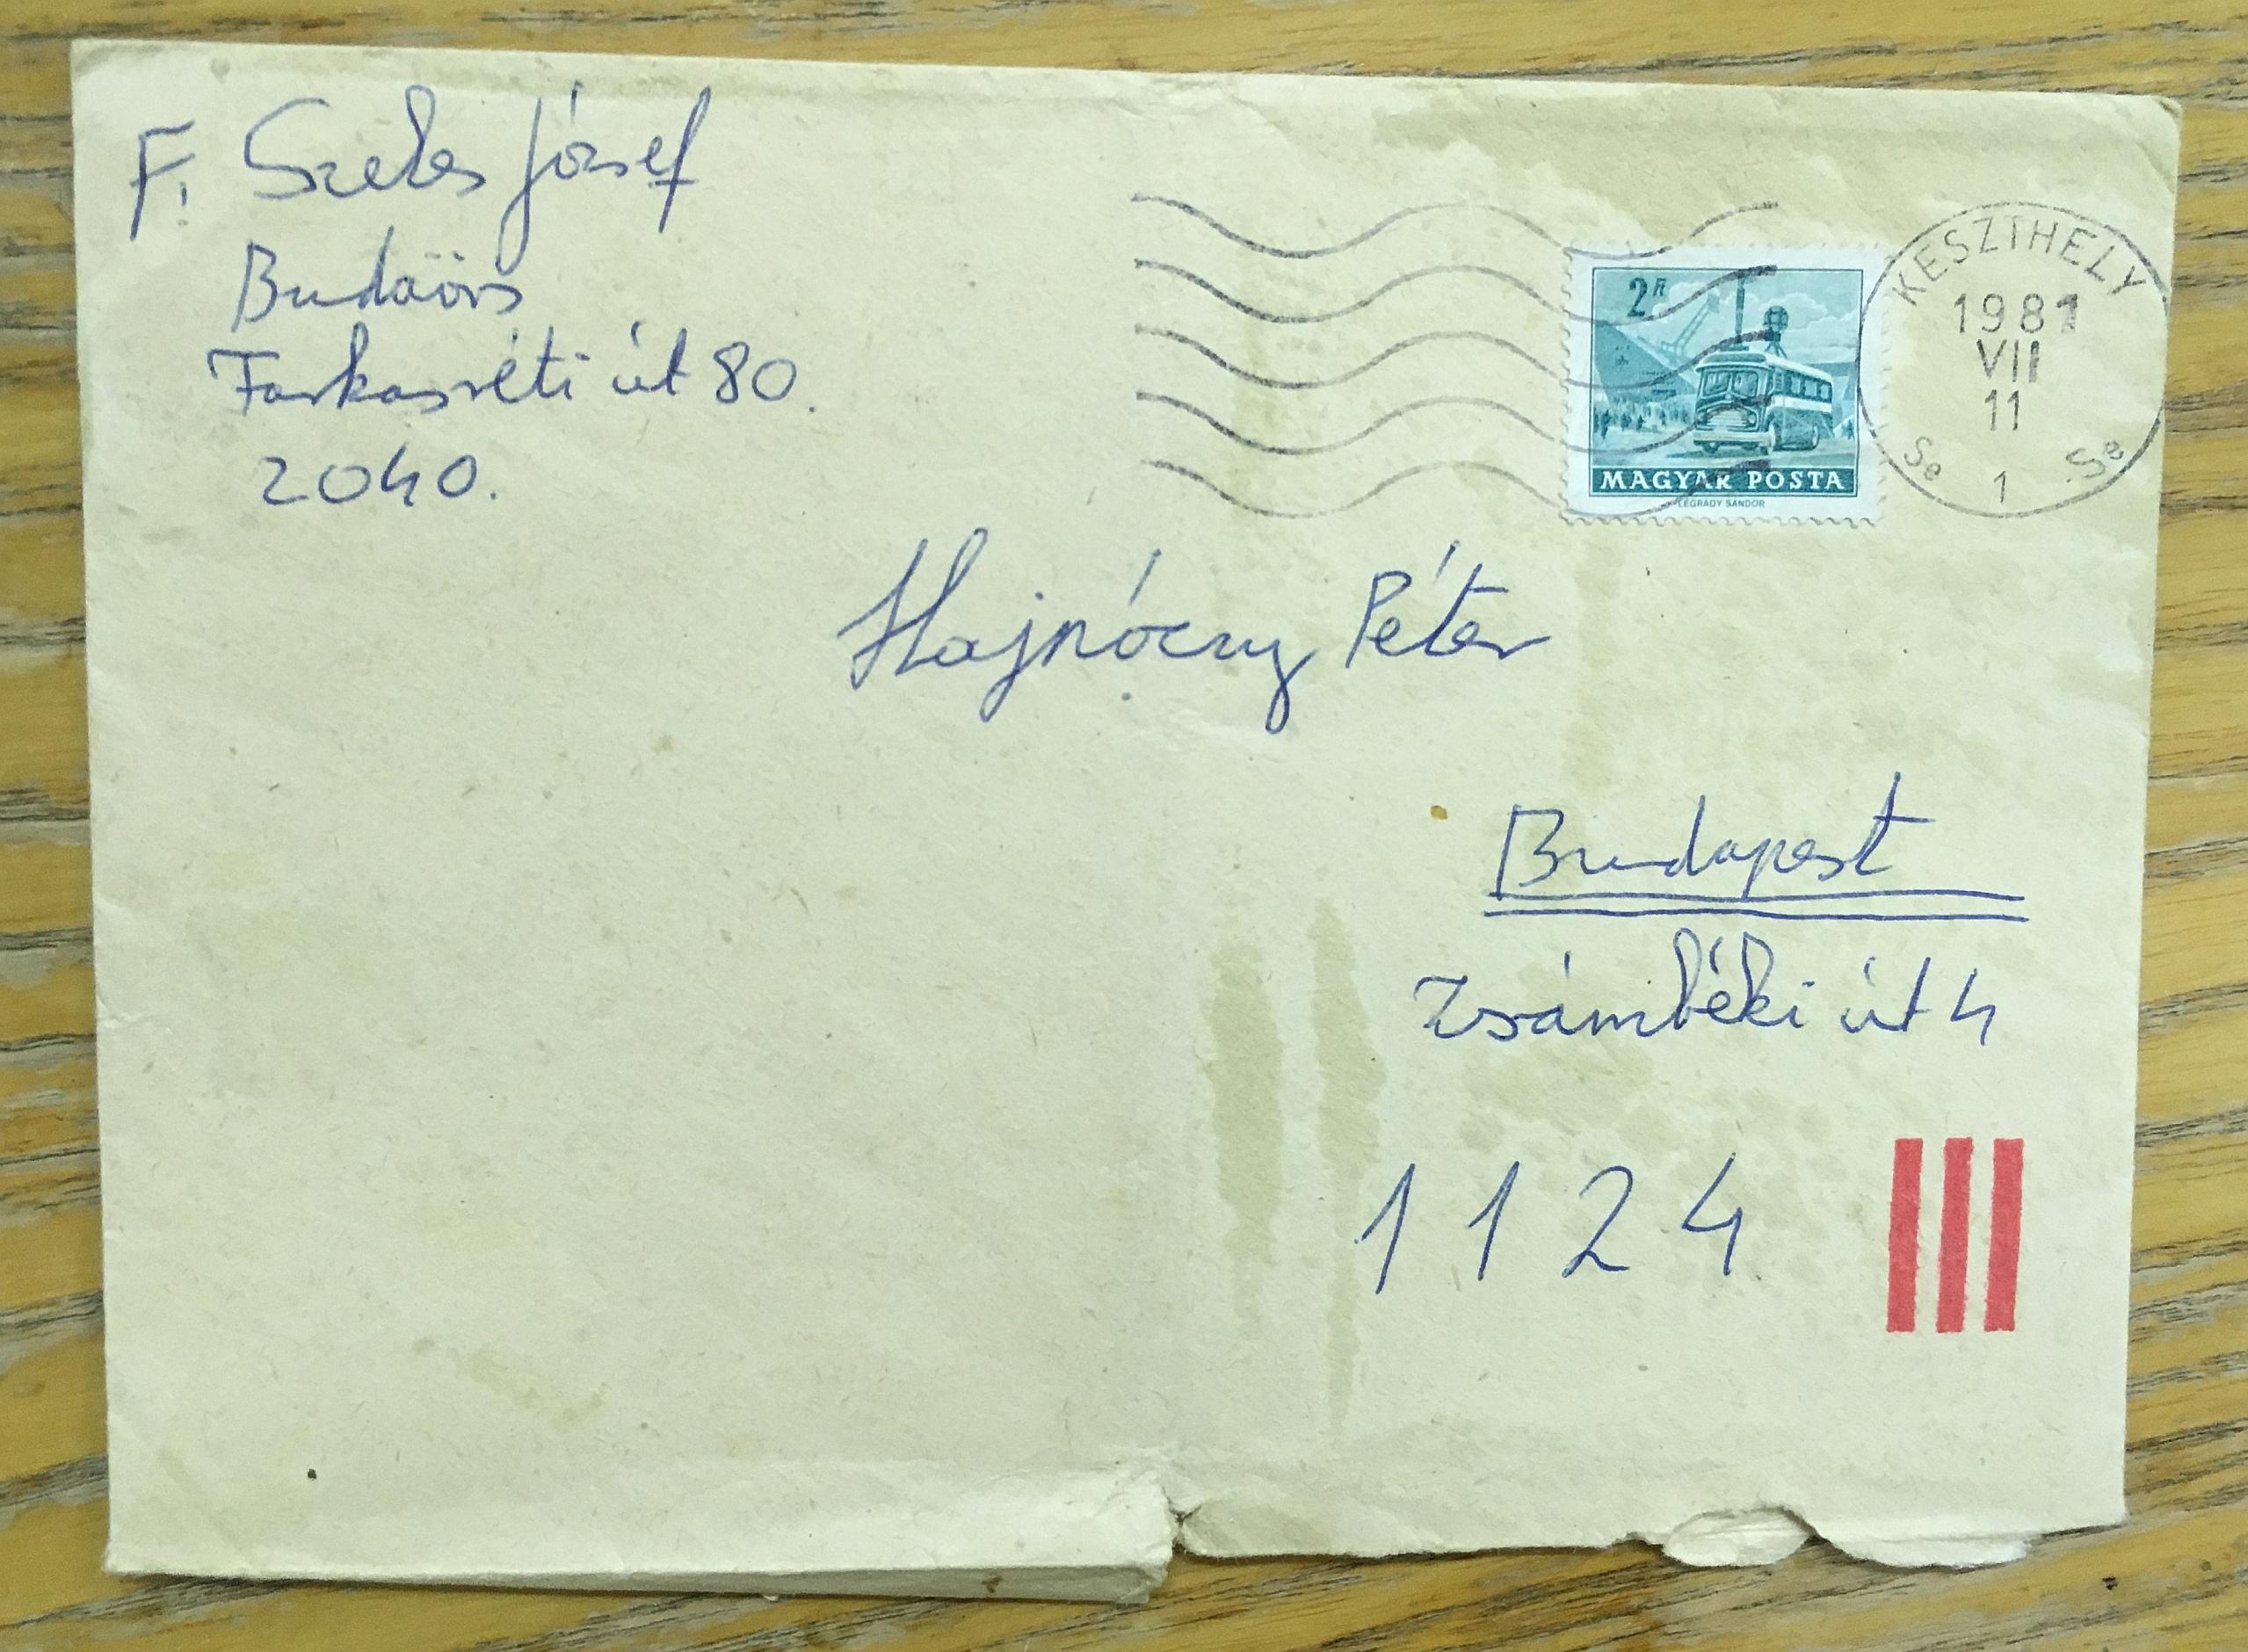 F. Szeles József
Budaörs
Farkasréti út 80.
2040.
2 Ft
MAGYAR POSTA
LÉGRÁDY SÁNDOR
KESZTHELY
1981
VII
11
Se 1 Se
Hajnóczy Péter
Budapest
Zsámbéki út 4
1124